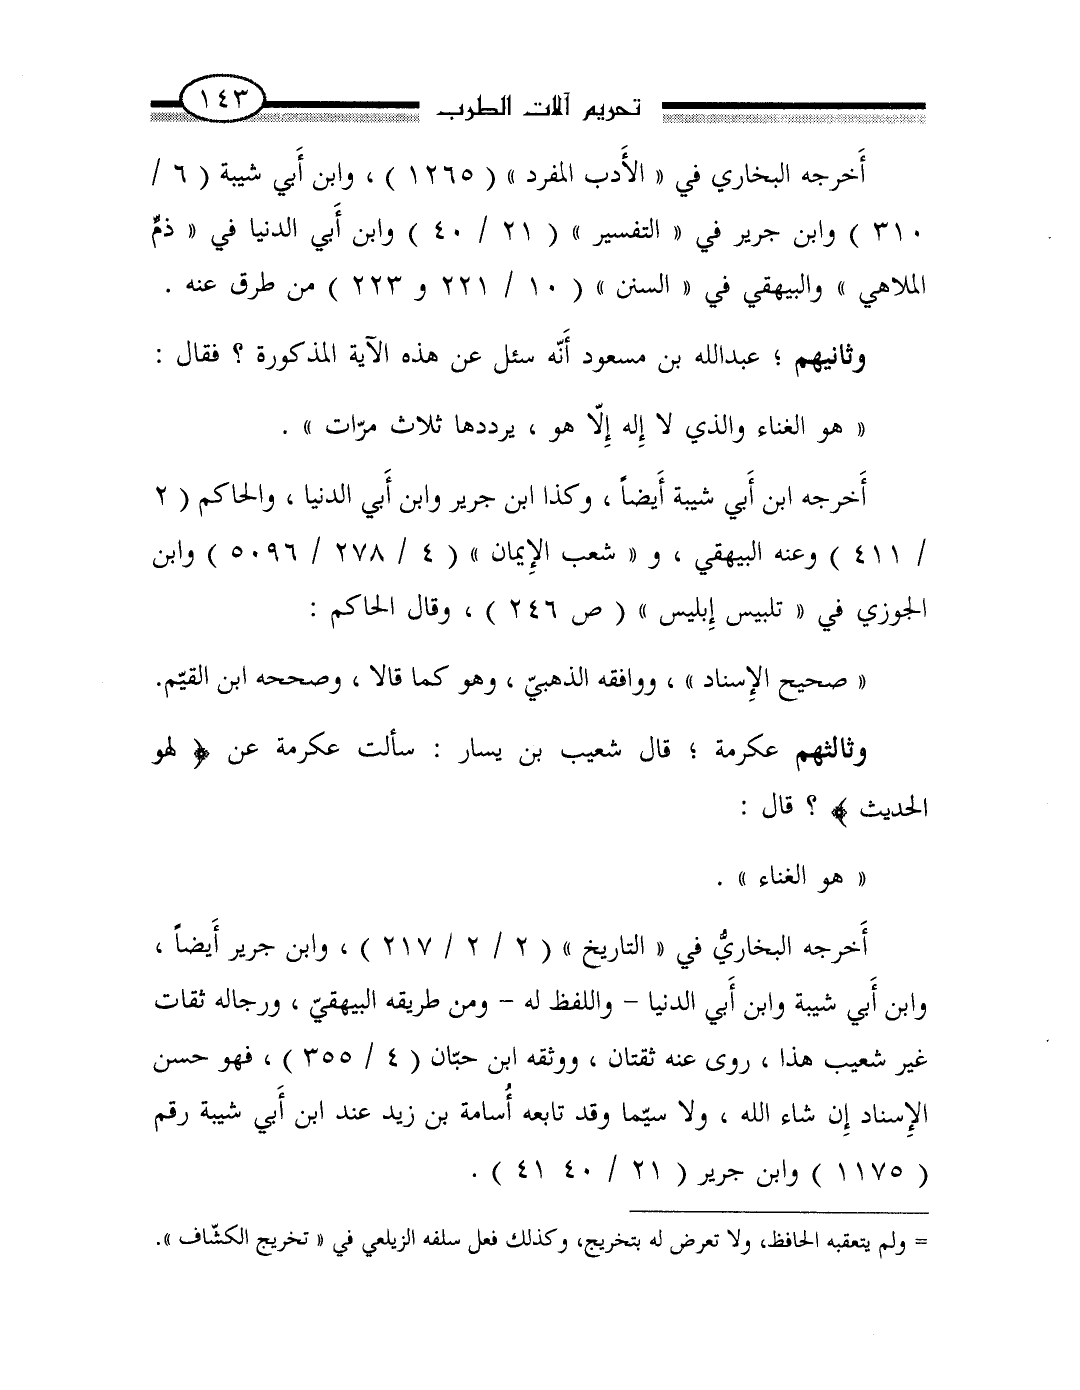 تحريم آلات الطرب ١٤٣
أَخرجه البخاري في « الأَدب المفرد » ( ١٢٦٥ ) ، وابن أَبي شيبة ( ٦ /
٣١٠ ) وابن جرير في « التفسير » ( ٢١ / ٤٠ ) وابن أَبي الدنيا في « ذمّ
الملاهي » والبيهقي في « السنن » ( ١٠ / ٢٢١ و ٢٢٣ ) من طرق عنه .
وثانيهم ؛ عبدالله بن مسعود أَنّه سئل عن هذه الآية المذكورة ؟ فقال :
« هو الغناء والذي لا إِله إِلّا هو ، يرددها ثلاث مرّات » .
أَخرجه ابن أَبي شيبة أَيضاً ، وكذا ابن جرير وابن أَبي الدنيا ، والحاكم ( ٢
/ ٤١١ ) وعنه البيهقي ، و « شعب الإِيمان » ( ٤ / ٢٧٨ / ٥٠٩٦ ) وابن
الجوزي في « تلبيس إِبليس » ( ص ٢٤٦ ) ، وقال الحاكم :
« صحيح الإِسناد » ، ووافقه الذهبيّ ، وهو كما قالا ، وصححه ابن القيّم.
وثالثهم عكرمة ؛ قال شعيب بن يسار : سألت عكرمة عن ﴿ لهو
الحديث ﴾ ؟ قال :
« هو الغناء » .
أَخرجه البخاريُّ في « التاريخ » ( ٢ / ٢ / ٢١٧ ) ، وابن جرير أَيضاً ،
وابن أَبي شيبة وابن أَبي الدنيا - واللفظ له - ومن طريقه البيهقيّ ، ورجاله ثقات
غير شعيب هذا ، روى عنه ثقتان ، ووثقه ابن حبّان ( ٤ / ٣٥٥ ) ، فهو حسن
الإِسناد إِن شاء الله ، ولا سيّما وقد تابعه أُسامة بن زيد عند ابن أَبي شيبة رقم
( ١١٧٥ ) وابن جرير ( ٢١ / ٤٠ ٤١ ) .
= ولم يتعقبه الحافظ، ولا تعرض له بتخريج، وكذلك فعل سلفه الزيلعي في « تخريج الكشّاف ».